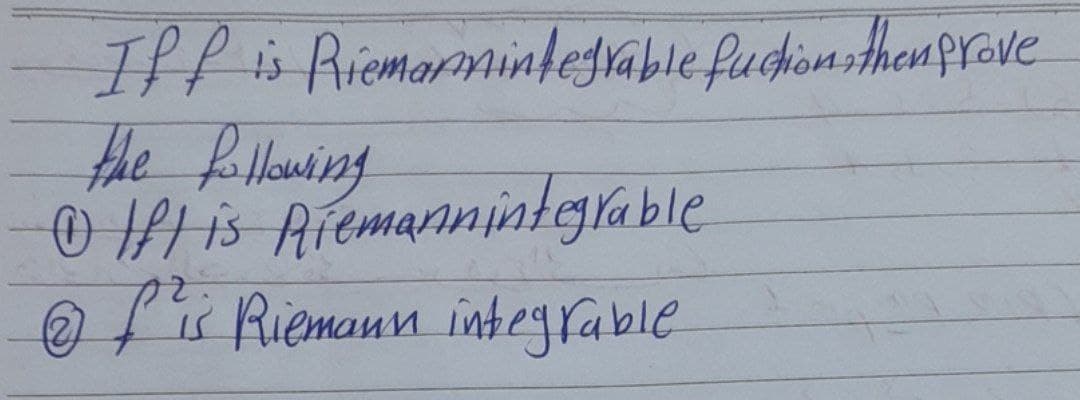 If f is Riemannintegrable fuction, then prove
the following
① |f| is Riemannintegrable
② f² is Riemann integrable